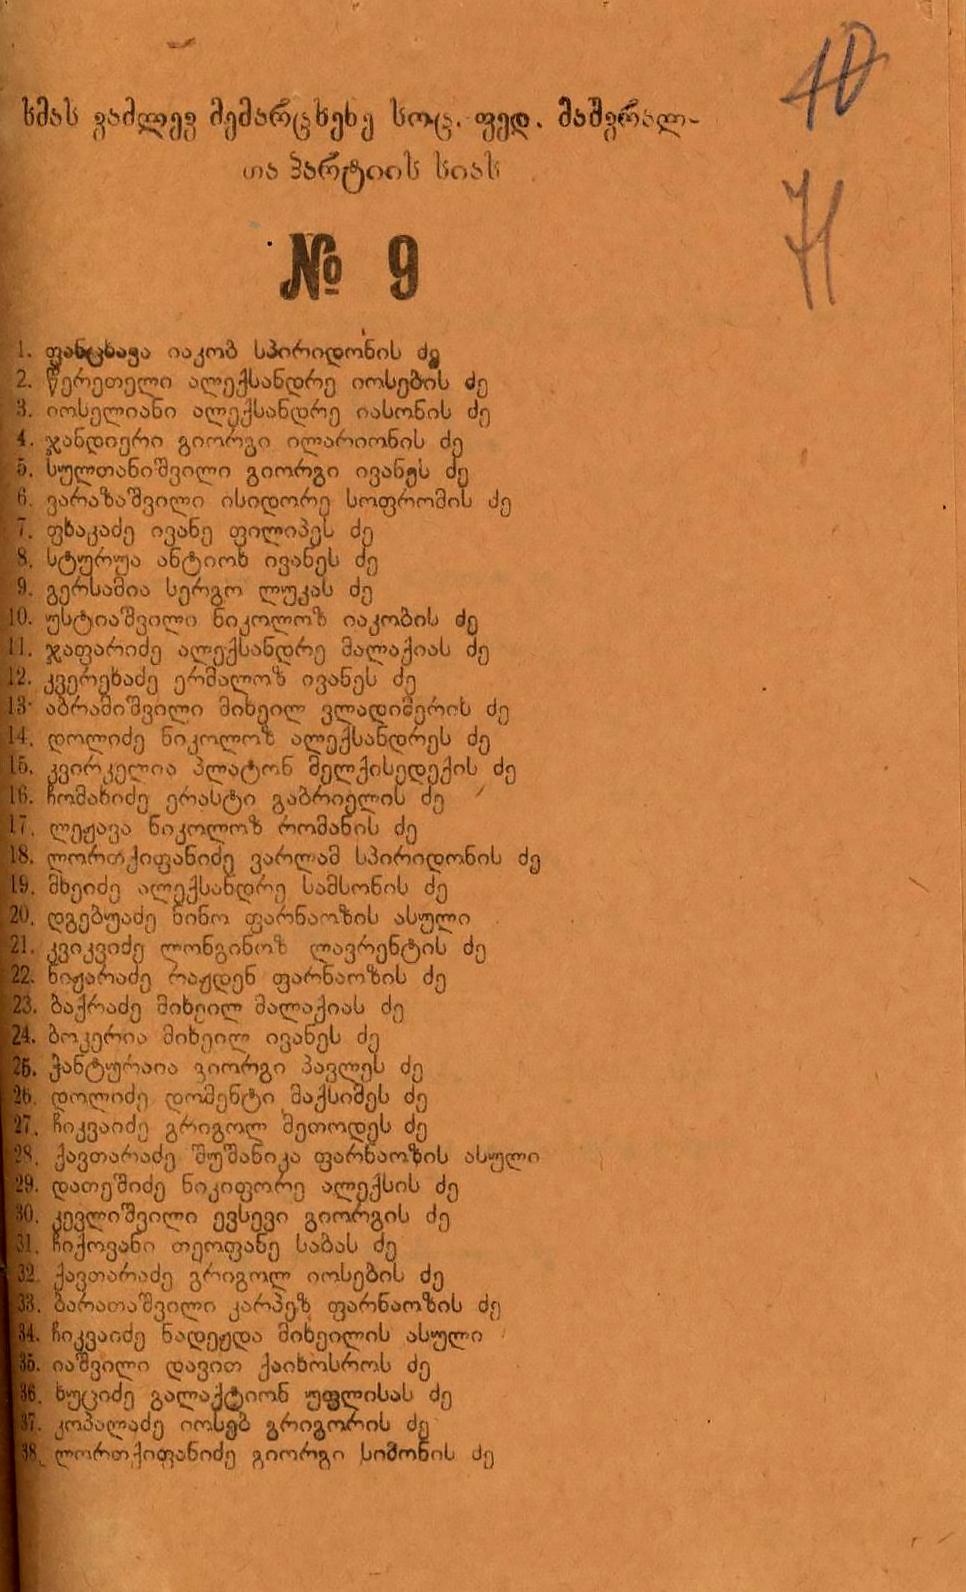 ხმას ვაძლევ მემარცხენე სოც. ფედ. მაშვრალ-
თა პარტიის სიას
№ 9
10
71
1. ფანცხავა იაკობ სპირიდონის ძე
2. წერეთელი ალექსანდრე იოსების ძე
3. იოსელიანი ალექსანდრე იასონის ძე
4. ჯანდიერი გიორგი ილარიონის ძე
5. სულთანიშვილი გიორგი ივანეს ძე
6. ვარაზაშვილი ისიდორე სოფრომის ძე
7. ფხაკაძე ივანე ფილიპეს ძე
8. სტურუა ანტიოხ ივანეს ძე
9. გერსამია სერგო ლუკას ძე
10. უსტიაშვილი ნიკოლოზ იაკობის ძე
11. ჯაფარიძე ალექსანდრე მალაქიას ძე
12. კვერეხაძე ერმალოზ ივანეს ძე
13. აბრამიშვილი მიხეილ ვლადიმერის ძე
14. დოლიძე ნიკოლოზ ალექსანდრეს ძე
15. კვირკელია პლატონ მელქისედექის ძე
16. ჩომახიძე ერასტი გაბრიელის ძე
17. ლეჟავა ნიკოლოზ რომანის ძე
18. ლორთქიფანიძე ვარლამ სპირიდონის ძე
19. მხეიძე ალექსანდრე სამსონის ძე
20. დგებუაძე ნინო ფარნაოზის ასული
21. კვიკვიძე ლონგინოზ ლავრენტის ძე
22. ნიჟარაძე რაჟდენ ფარნაოზის ძე
23. ბაქრაძე მიხეილ მალაქიას ძე
24. ბოკერია მიხეილ ივანეს ძე
25. ჭანტურაია გიორგი პავლეს ძე
26. დოლიძე დომენტი მაქსიმეს ძე
27. ჩიკვაიძე გრიგოლ მეთოდეს ძე
28. ქავთარაძე შუშანიკა ფარნაოზის ასული
29. დათეშიძე ნიკიფორე ალექსის ძე
30. კევლიშვილი ევსევი გიორგის ძე
31. ჩიქოვანი თეოფანე საბას ძე
32. ქავთარაძე გრიგოლ იოსების ძე
33. ბარათაშვილი კარპეზ ფარნაოზის ძე
34. ჩიკვაიძე ნადეჟდა მიხეილის ასული
35. იაშვილი დავით ქაიხოსროს ძე
36. ხუციძე გალაქტიონ უფლისას ძე
37. კოპალაძე იოსებ გრიგორის ძე
38. ლორთქიფანიძე გიორგი სიმონის ძე